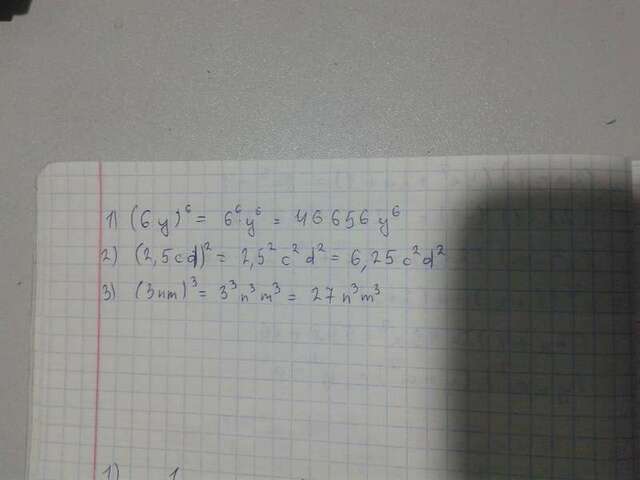 1) (6y)⁶ = 6⁶y⁶ = 46656y⁶
2) (2,5cd)² = 2,5²c²d² = 6,25c²d²
3) (3nm)³ = 3³n³m³ = 27n³m³
1) 1